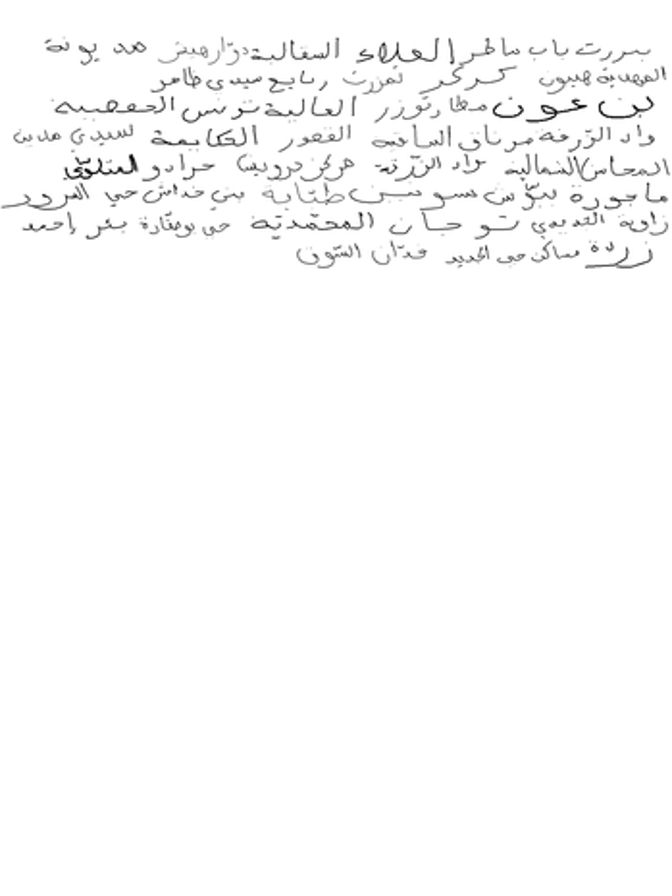 بنزرت باب خاطر العلاء السفالية دوّار هيشر مديونة
المهدية هبيون كركر تمزرت ربايع سيدي ظاهر
بن عون مطار توزر العالية تونس الحفصية
واد الزرقة مرناق الساقية القصور الكايمة لسيدي مدين
المحاسن الشمالية واد الزرقة مركز درويش حزاد و المتلوّي
ماجورة ببّوش سوسة طبّابة بني خداش حي السرور
زاوية القديدي توجان المحمّديّة حي بوصفّارة بئر إحمد
زردة مساكن حي الجديد فدّان السّوق